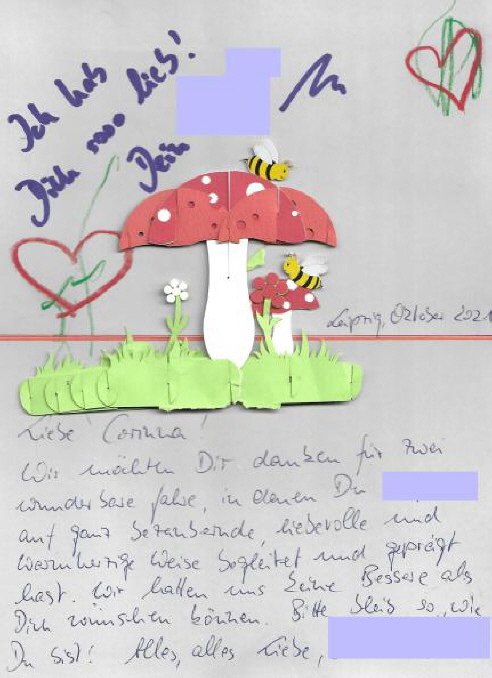 Ich hab
Dich sooo lieb!
Dein
Leipzig, Oktober 2021
Liebe Corinna!
Wir möchten Dir danken für zwei
wunderbare Jahre, in denen Du
auf ganz bezaubernde, liebevolle und
warmherzige Weise begleitet und geprägt
hast. Wir hätten uns keine Bessere als
Dich wünschen können. Bitte bleib so, wie
Du bist! Alles, alles Liebe,